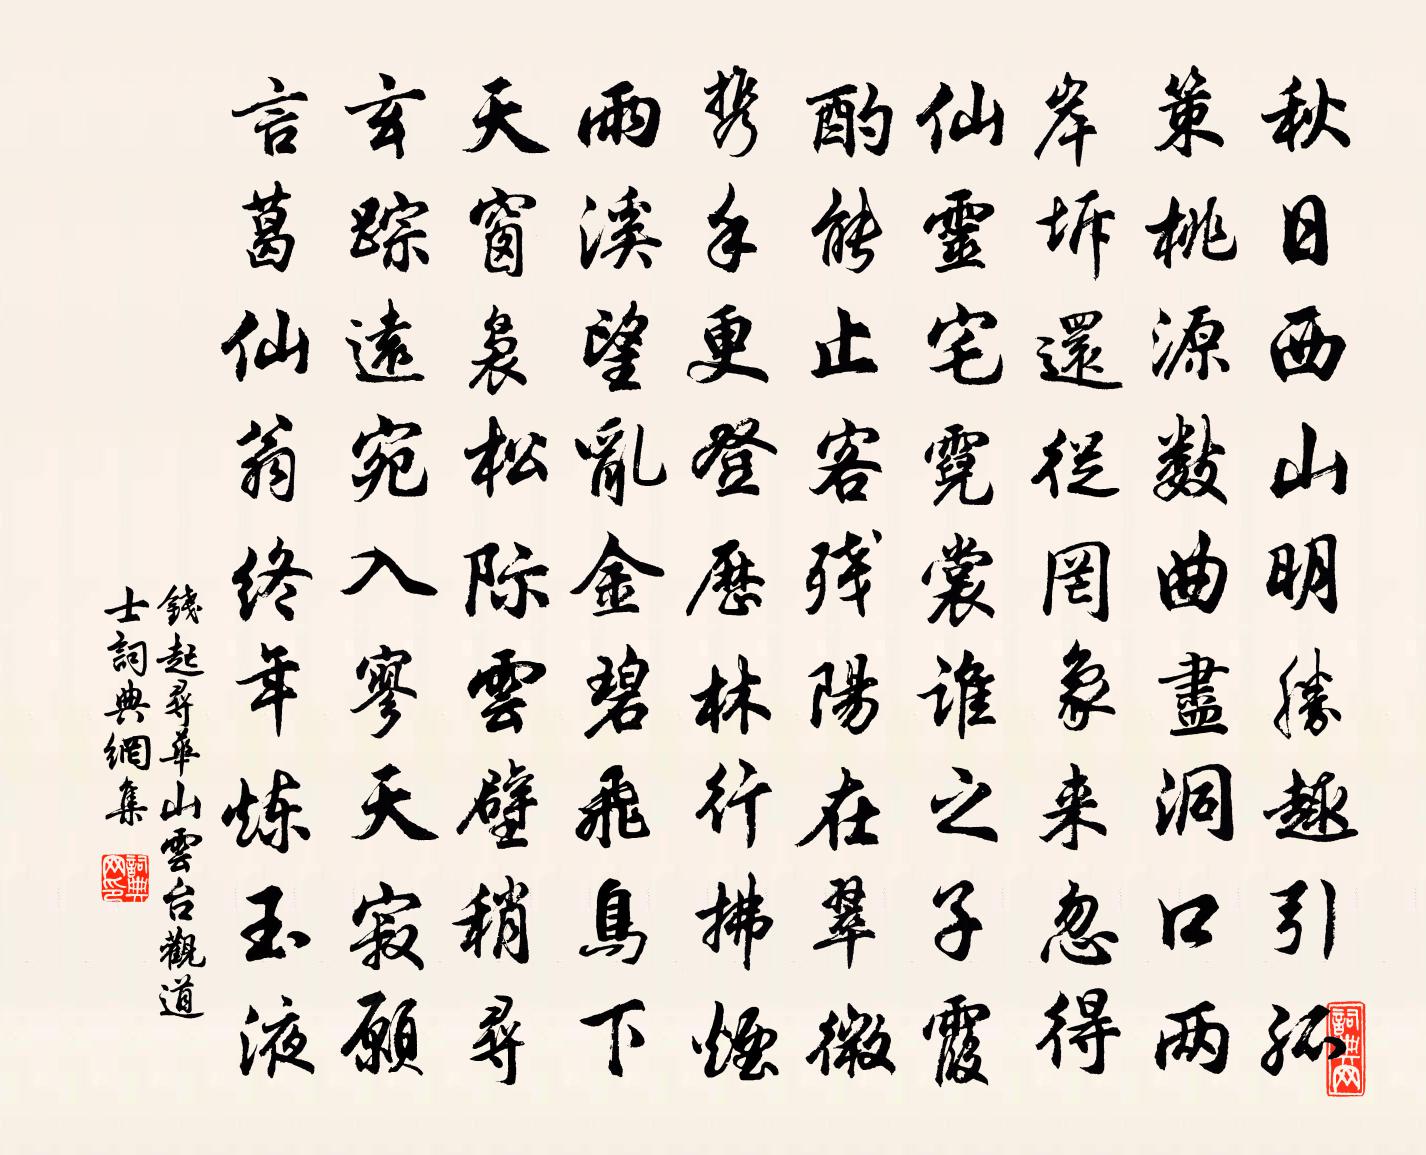 秋日西山明勝趣引孤
策桃源数曲盡洞口两
岸坼還從罔象来忽得
仙靈宅霓裳誰之子霞
酌能止客残陽在翠微
携手更登歷林行拂煙
雨溪望亂金碧飛鳥下
天窗裊松際雲壁稍尋
玄踪遠宛入寥天寂願
言葛仙翁終年炼玉液
錢起尋華山雲台觀道
士詞典網集
詞典网印
詞典网